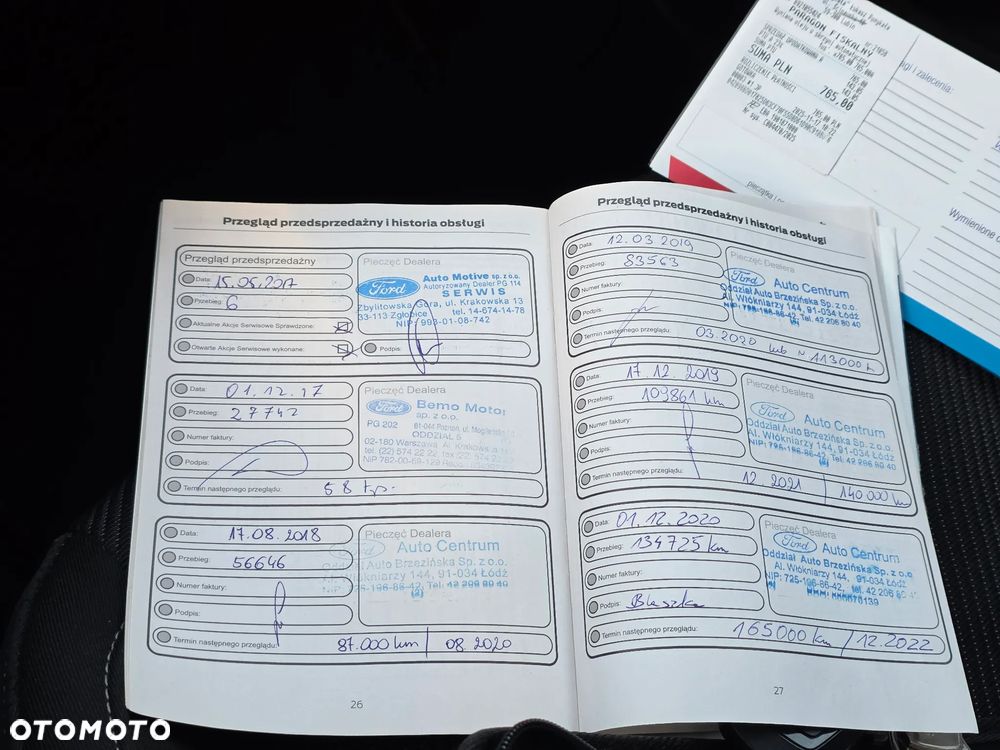 PARAGON FISKALNY
SPRZEDAŻ OPODATKOWANA A
SUMA PLN 765,00
ROZLICZENIE PŁATNOŚCI
GOTÓWKA 765,00 PLN
2025-11-17
agi i zalecenia:
Wymienione
Przegląd przedsprzedażny i historia obsługi
Przegląd przedsprzedażny
Data: 15.05.2017
Przebieg: 6
Aktualne Akcje Serwisowe Sprawdzone:
Otwarte Akcje Serwisowe wykonane:
Podpis:
Pieczęć Dealera
Ford
Auto Motive sp. z o.o.
Autoryzowany Dealer PG 114
SERWIS
Zbylitowska Góra, ul. Krakowska 13
33-113 Zgłobice tel. 14-674-14-78
NIP: 993-01-08-742
Data: 01.12.17
Przebieg: 27742
Numer faktury:
Podpis:
Pieczęć Dealera
Ford
Bemo Motor
sp. z o.o.
PG 202
ODDZIAŁ 5
02-180 Warszawa
Termin następnego przeglądu: 58 tp.
Data: 17.08.2018
Przebieg: 56646
Numer faktury:
Podpis:
Pieczęć Dealera
Ford
Auto Centrum
Oddział Auto Brzezińska Sp. z o.o.
Al. Włókniarzy 144, 91-034 Łódź
NIP: 725-196-86-42, Tel. 42 206 80 40
Termin następnego przeglądu: 87.000 km / 08.2020
26
Przegląd przedsprzedażny i historia obsługi
Data: 12.03 2019
Przebieg: 83563
Numer faktury:
Podpis:
Pieczęć Dealera
Ford
Auto Centrum
Oddział Auto Brzezińska Sp. z o.o.
Al. Włókniarzy 144, 91-034 Łódź
NIP: 725-196-86-42, Tel. 42 206 80 40
Termin następnego przeglądu: 03.2020 lub ~113000 k
Data: 17.12.2019
Przebieg: 109861 km
Numer faktury:
Podpis:
Pieczęć Dealera
Ford
Auto Centrum
Oddział Auto Brzezińska Sp. z o.o.
Al. Włókniarzy 144, 91-034 Łódź
NIP: 725-196-86-42, Tel. 42 206 80 40
Termin następnego przeglądu: 12 2021 / 140 000 km
Data: 01.12.2020
Przebieg: 134725 km
Numer faktury:
Podpis:
Pieczęć Dealera
Ford
Auto Centrum
Oddział Auto Brzezińska Sp. z o.o.
Al. Włókniarzy 144, 91-034 Łódź
NIP: 725-196-86-42, tel. 42 206 80 4
Termin następnego przeglądu: 165000 km / 12.2022
27
OTOMOTO